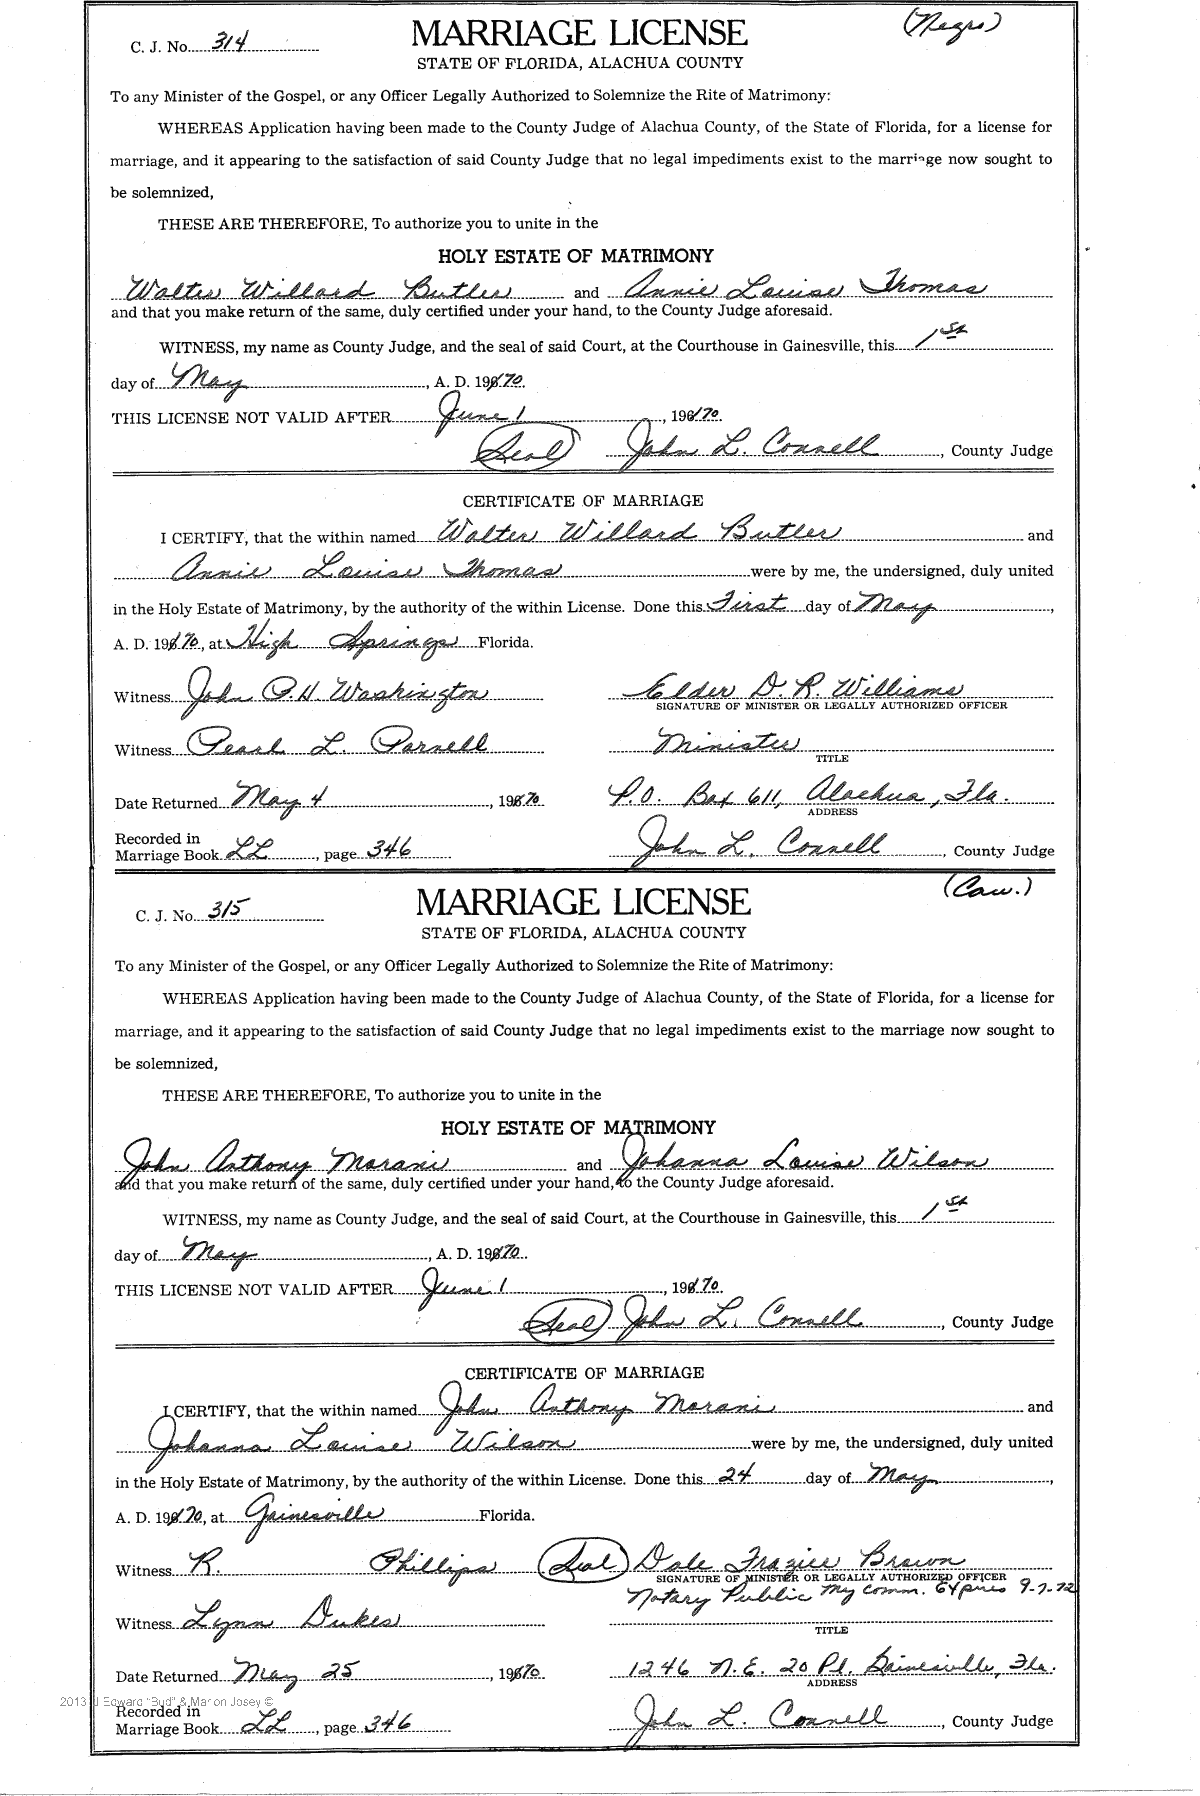 C. J. No. 314 MARRIAGE LICENSE (Negro)
STATE OF FLORIDA, ALACHUA COUNTY
To any Minister of the Gospel, or any Officer Legally Authorized to Solemnize the Rite of Matrimony:
WHEREAS Application having been made to the County Judge of Alachua County, of the State of Florida, for a license for
marriage, and it appearing to the satisfaction of said County Judge that no legal impediments exist to the marriage now sought to
be solemnized,
THESE ARE THEREFORE, To authorize you to unite in the
HOLY ESTATE OF MATRIMONY
Walter Willard Butler and Annie Louise Thomas
and that you make return of the same, duly certified under your hand, to the County Judge aforesaid.
WITNESS, my name as County Judge, and the seal of said Court, at the Courthouse in Gainesville, this 1st
day of May, A. D. 1970.
THIS LICENSE NOT VALID AFTER June 1, 1970.
(Seal) John L. Connell, County Judge
CERTIFICATE OF MARRIAGE
I CERTIFY, that the within named Walter Willard Butler and
Annie Louise Thomas were by me, the undersigned, duly united
in the Holy Estate of Matrimony, by the authority of the within License. Done this First day of May,
A. D. 1970, at High Springs Florida.
Witness John P.H. Washington Elder D. R. Williams
SIGNATURE OF MINISTER OR LEGALLY AUTHORIZED OFFICER
Witness Pearl L. Parnell Minister
TITLE
Date Returned May 4, 1970 P.O. Box 611, Alachua, Fla.
ADDRESS
Recorded in
Marriage Book LL, page 346 John L. Connell, County Judge
C. J. No. 315 MARRIAGE LICENSE (Cau.)
STATE OF FLORIDA, ALACHUA COUNTY
To any Minister of the Gospel, or any Officer Legally Authorized to Solemnize the Rite of Matrimony:
WHEREAS Application having been made to the County Judge of Alachua County, of the State of Florida, for a license for
marriage, and it appearing to the satisfaction of said County Judge that no legal impediments exist to the marriage now sought to
be solemnized,
THESE ARE THEREFORE, To authorize you to unite in the
HOLY ESTATE OF MATRIMONY
John Anthony Morani and Johanna Louise Wilson
and that you make return of the same, duly certified under your hand, to the County Judge aforesaid.
WITNESS, my name as County Judge, and the seal of said Court, at the Courthouse in Gainesville, this 1st
day of May, A. D. 1970.
THIS LICENSE NOT VALID AFTER June 1, 1970.
(Seal) John L. Connell, County Judge
CERTIFICATE OF MARRIAGE
I CERTIFY, that the within named John Anthony Morani and
Johanna Louise Wilson were by me, the undersigned, duly united
in the Holy Estate of Matrimony, by the authority of the within License. Done this 24 day of May,
A. D. 1970, at Gainesville Florida.
Witness R. Phillips (Seal) Dale Frazier Brown
SIGNATURE OF MINISTER OR LEGALLY AUTHORIZED OFFICER
Notary Public My comm. Expires 9-7-72
Witness Lynn Dukes
TITLE
Date Returned May 25, 1970 1246 N.E. 20 Pl. Gainesville, Fla.
ADDRESS
2013 J Edward "Bud" & Marion Josey ©
Recorded in
Marriage Book LL, page 346 John L. Connell, County Judge